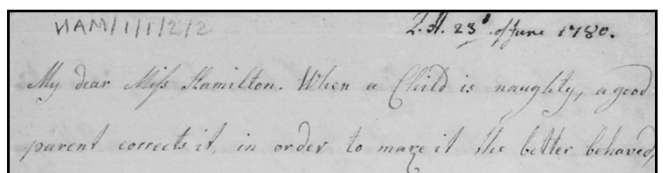 HAM/1/1/2/2
Q.H. 23d of June 1780.
My dear Miſs Hamilton. When a Child is naughty, a good
parent corrects it, in order to make it the better behaved,